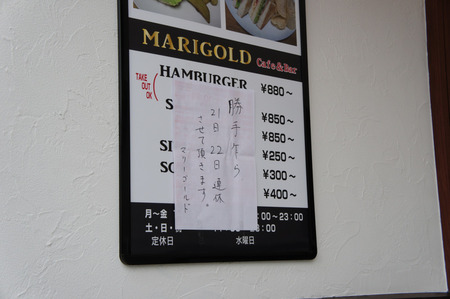 MARIGOLD Cafe&Bar
TAKE OUT OK
HAMBURGER ¥880～
S ¥850～
¥850～
SI ¥250～
SO ¥300～
¥400～
勝手乍ら
21日 22日 連休
させて頂きます。
マリーゴールド
月～金 :00～23:00
土・日・
定休日 水曜日